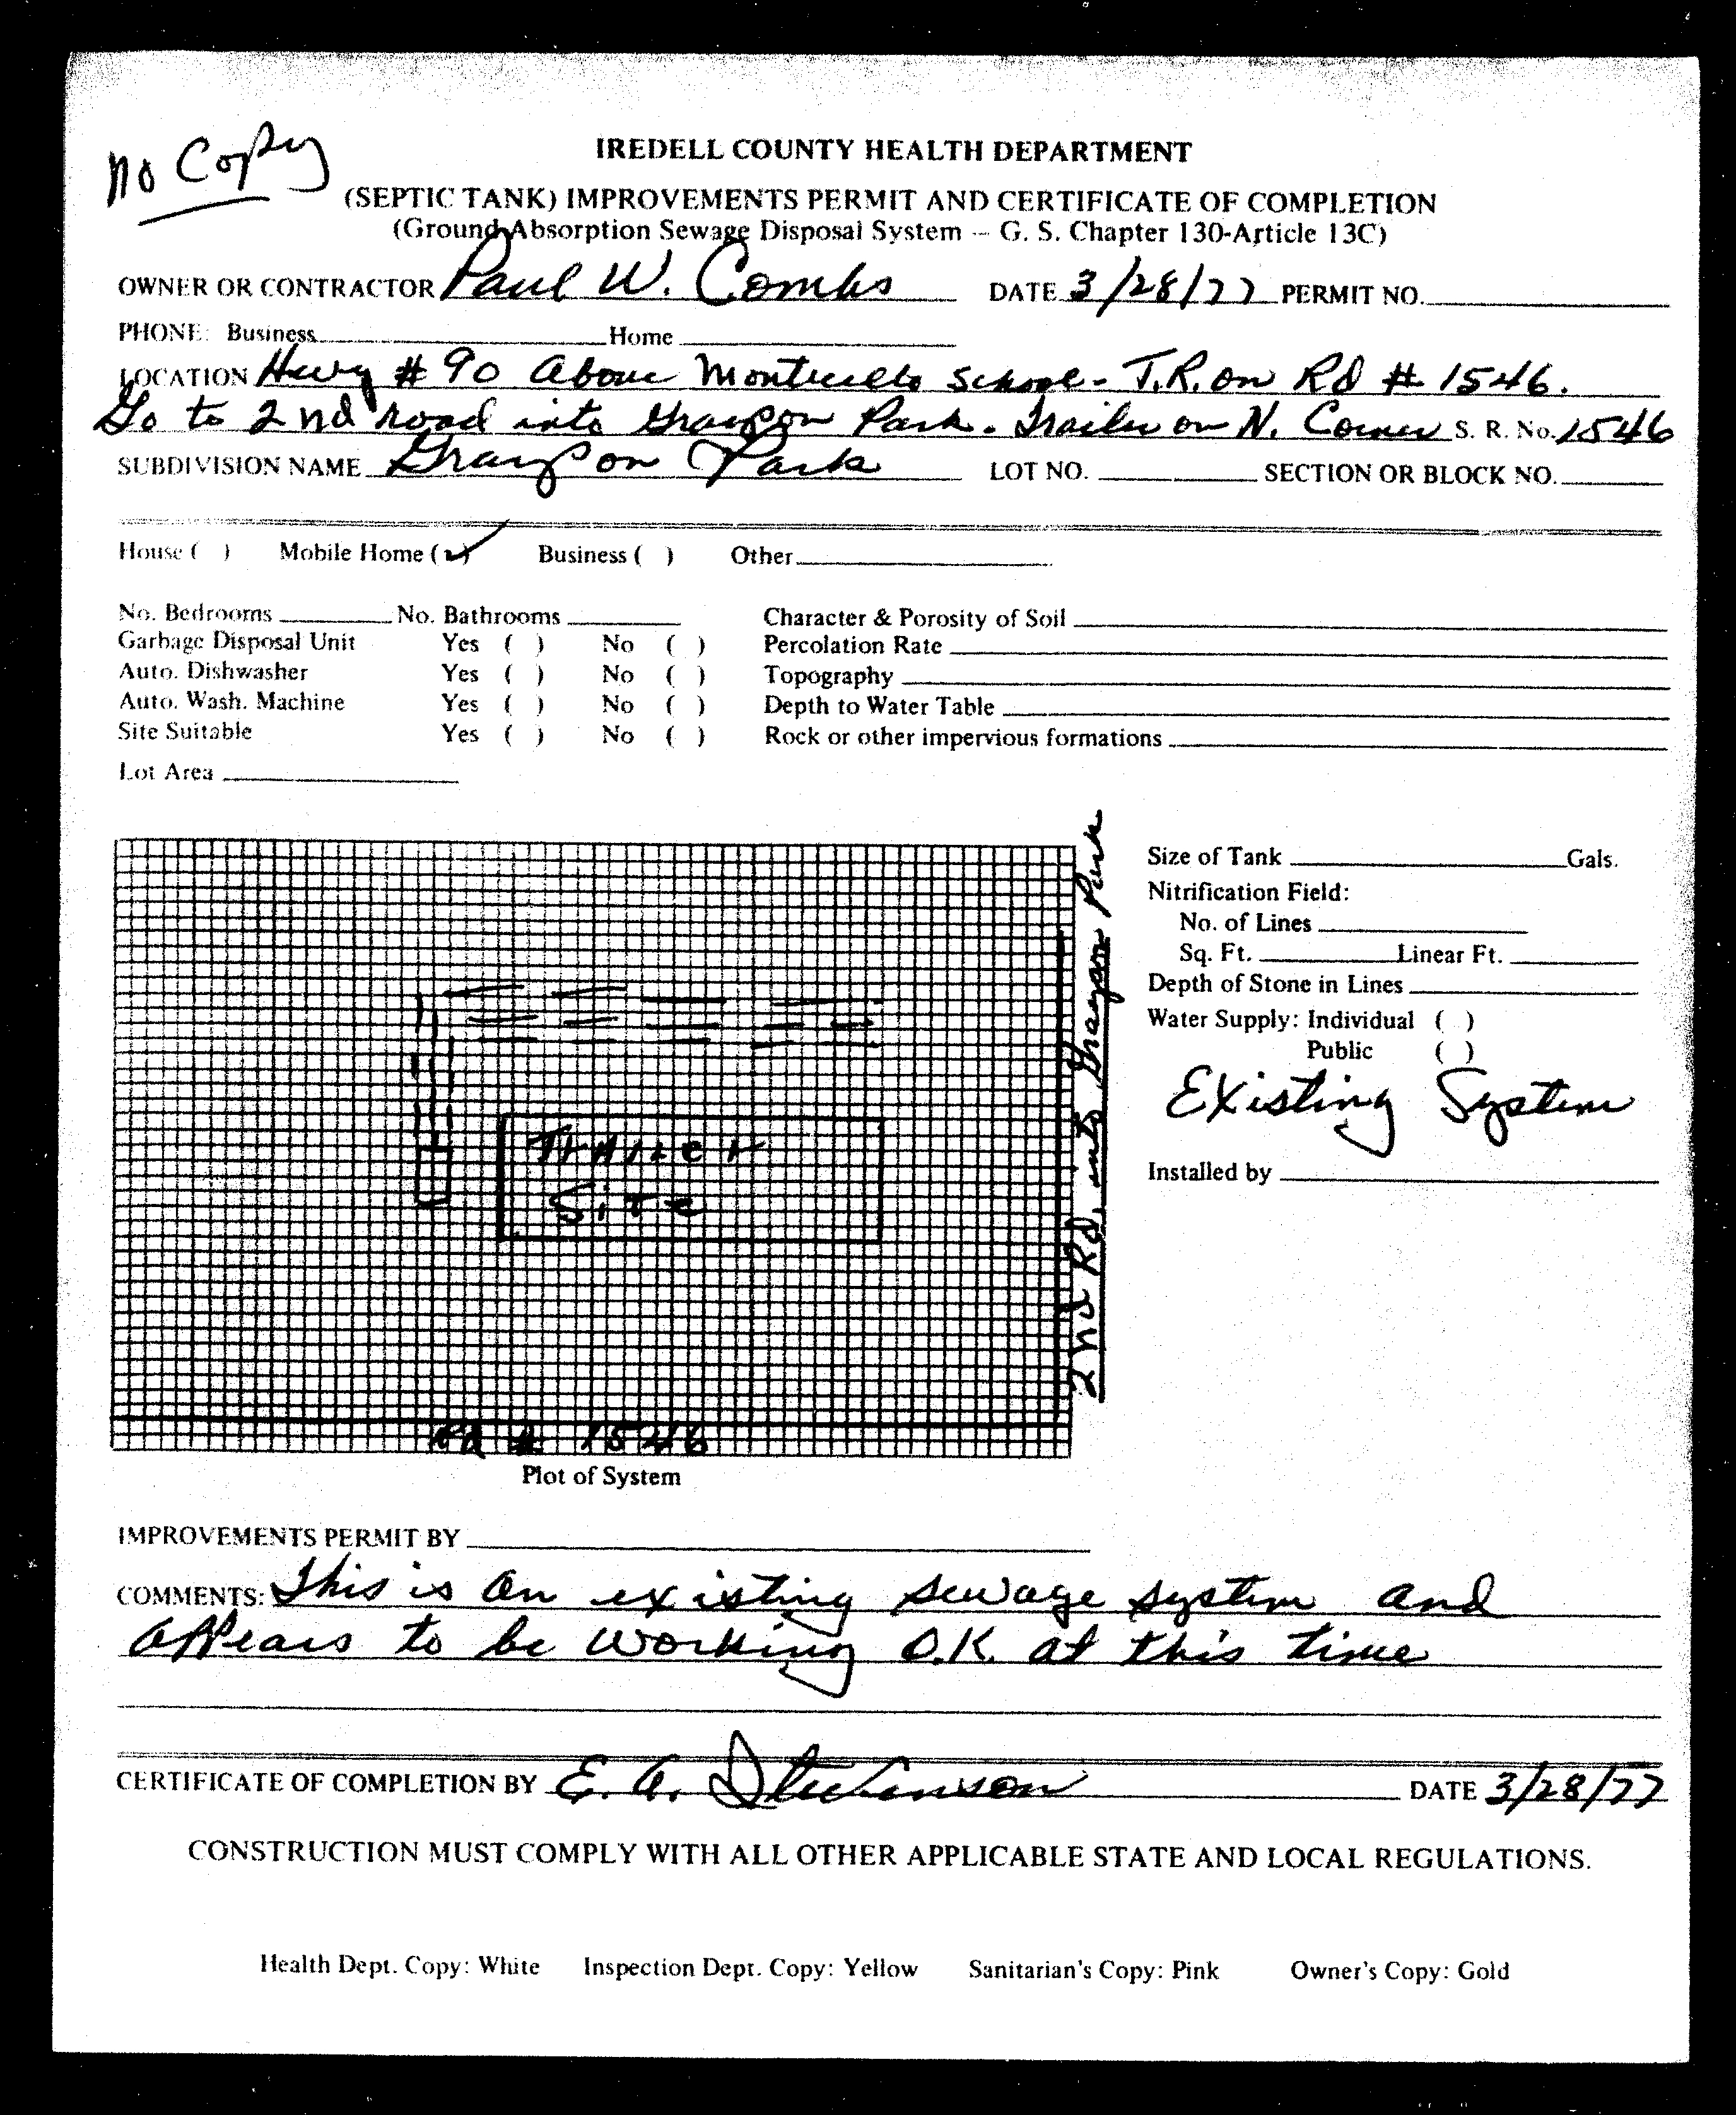 no Copy
IREDELL COUNTY HEALTH DEPARTMENT
(SEPTIC TANK) IMPROVEMENTS PERMIT AND CERTIFICATE OF COMPLETION
(Ground Absorption Sewage Disposal System -- G. S. Chapter 130-Article 13C)
OWNER OR CONTRACTOR Paul W. Combs DATE 3/28/77 PERMIT NO.
PHONE: Business Home
LOCATION Hwy # 90 above Monticello School - T.R. on Rd # 1546.
Go to 2nd road into Grayson Park. Trailer on N. Corner S. R. No. 1546
SUBDIVISION NAME Grayson Park LOT NO. SECTION OR BLOCK NO.
House ( ) Mobile Home (✓) Business ( ) Other
No. Bedrooms No. Bathrooms Character & Porosity of Soil
Garbage Disposal Unit Yes ( ) No ( ) Percolation Rate
Auto. Dishwasher Yes ( ) No ( ) Topography
Auto. Wash. Machine Yes ( ) No ( ) Depth to Water Table
Site Suitable Yes ( ) No ( ) Rock or other impervious formations
Lot Area
Trailer
Site
Rd # 1546
2nd Rd. into Grayson Park
Plot of System
Size of Tank Gals.
Nitrification Field:
No. of Lines
Sq. Ft. Linear Ft.
Depth of Stone in Lines
Water Supply: Individual ( )
Public ( )
Existing System
Installed by
IMPROVEMENTS PERMIT BY
COMMENTS: This is an existing sewage system and
appears to be working O.K. at this time
CERTIFICATE OF COMPLETION BY E. A. Stevenson DATE 3/28/77
CONSTRUCTION MUST COMPLY WITH ALL OTHER APPLICABLE STATE AND LOCAL REGULATIONS.
Health Dept. Copy: White Inspection Dept. Copy: Yellow Sanitarian's Copy: Pink Owner's Copy: Gold